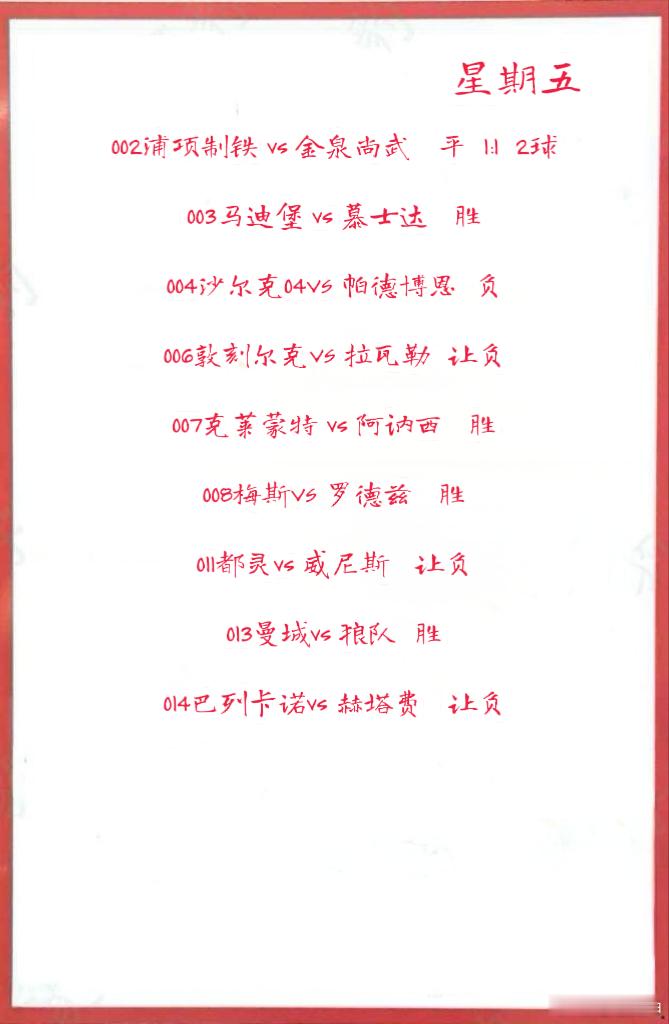 星期五
002浦项制铁 vs 金泉尚武 平 1:1 2球
003马迪堡 vs 慕士达 胜
004沙尔克04vs 帕德博恩 负
006敦刻尔克vs 拉瓦勒 让负
007克莱蒙特 vs 阿讷西 胜
008梅斯vs 罗德兹 胜
011都灵vs 威尼斯 让负
013曼城vs 狼队 胜
014巴列卡诺vs 赫塔费 让负